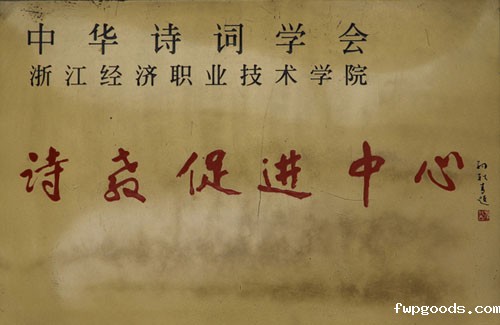 中华诗词学会
浙江经济职业技术学院
诗教促进中心
fwpgoods.com